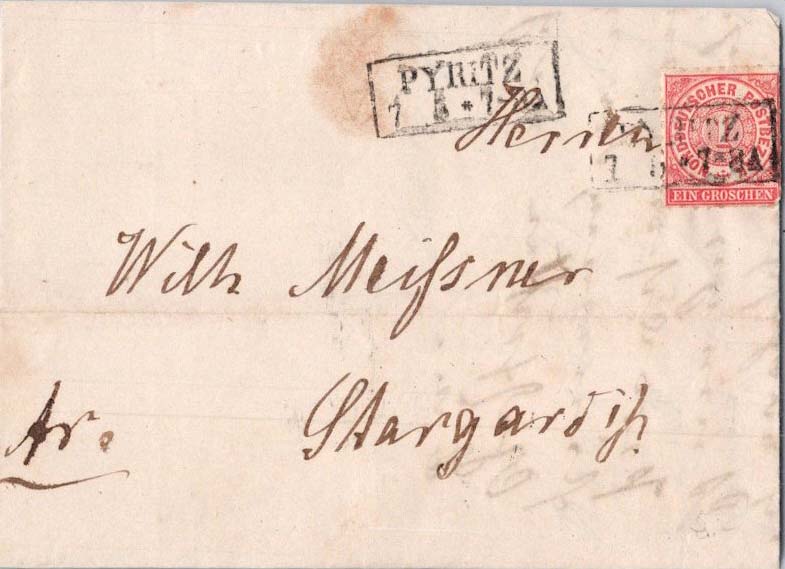 PYRITZ
7 5 * 7-8A
Herrn
NORDDEUTSCHER POSTBEZ
EIN GROSCHEN
7 5 * 7-8A
Wilh Meißner
Stargard i/P